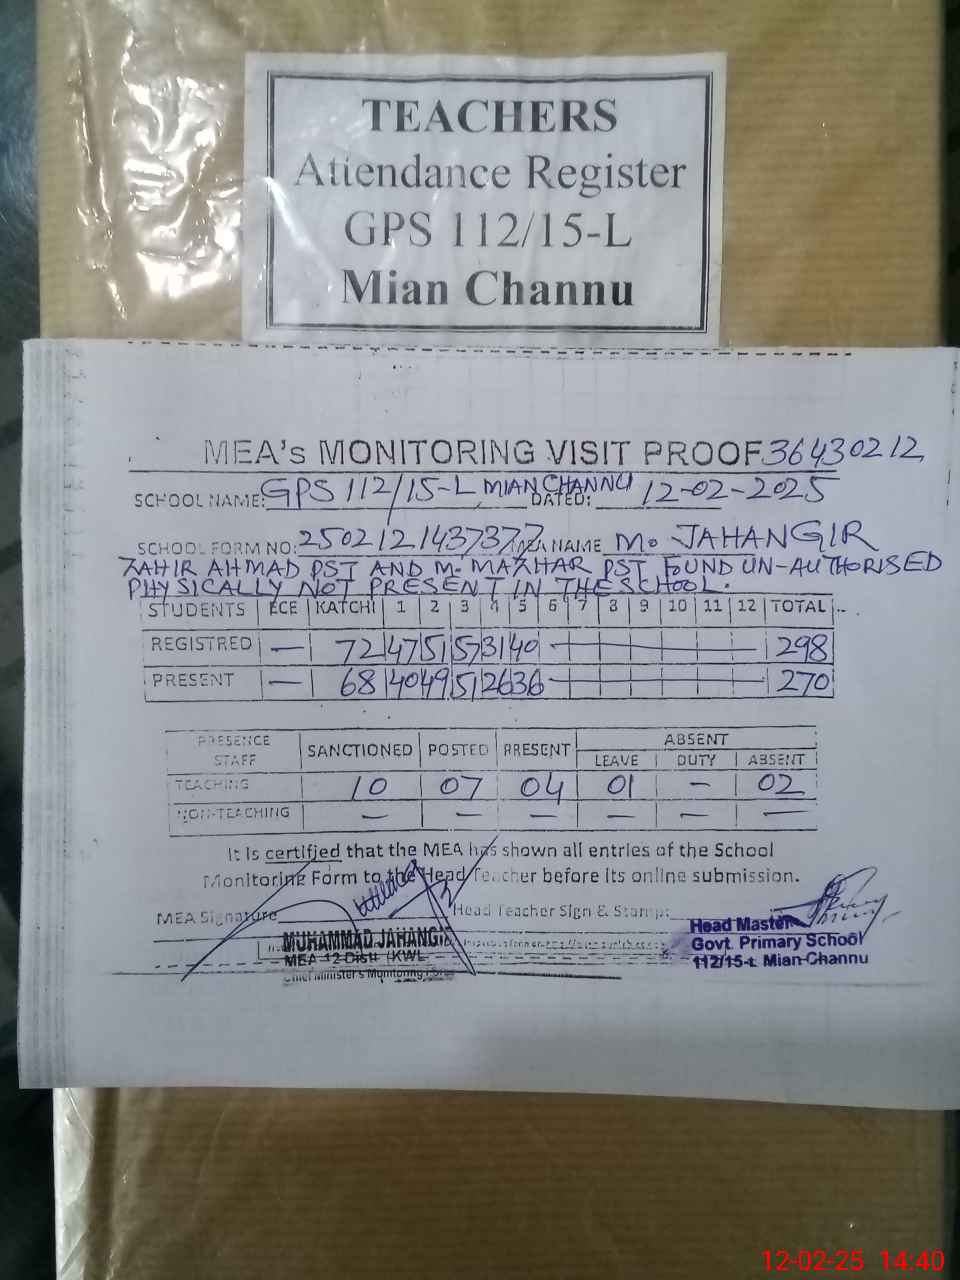 TEACHERS
Attendance Register
GPS 112/15-L
Mian Channu
MEA's MONITORING VISIT PROOF 36430212
SCHOOL NAME: GPS 112/15-L MIAN CHANNU DATED: 12-02-2025
SCHOOL FORM NO: 2502121437377 MEA NAME M. JAHANGIR
ZAHIR AHMAD PST AND M. MAZHAR PST FOUND UN-AUTHORISED
PHYSICALLY NOT PRESENT IN THE SCHOOL.
STUDENTS ECE KATCHI 1 2 3 4 5 6 7 8 9 10 11 12 TOTAL
REGISTRED — 72 47 51 57 31 40 — 298
PRESENT — 68 40 49 51 26 36 — 270
PRESENCE STAFF SANCTIONED POSTED PRESENT ABSENT
LEAVE DUTY ABSENT
TEACHING 10 07 04 01 - 02
NON-TEACHING — — — — — —
It is certified that the MEA has shown all entries of the School
Monitoring Form to the Head Teacher before its online submission.
MEA Signature Head Teacher Sign & Stamp:
MUHAMMAD JAHANGIR
MEA 12 Distt (KWL
Chief Minister's Monitoring
Head Master
Govt. Primary School
112/15-L Mian Channu
12-02-25 14:40